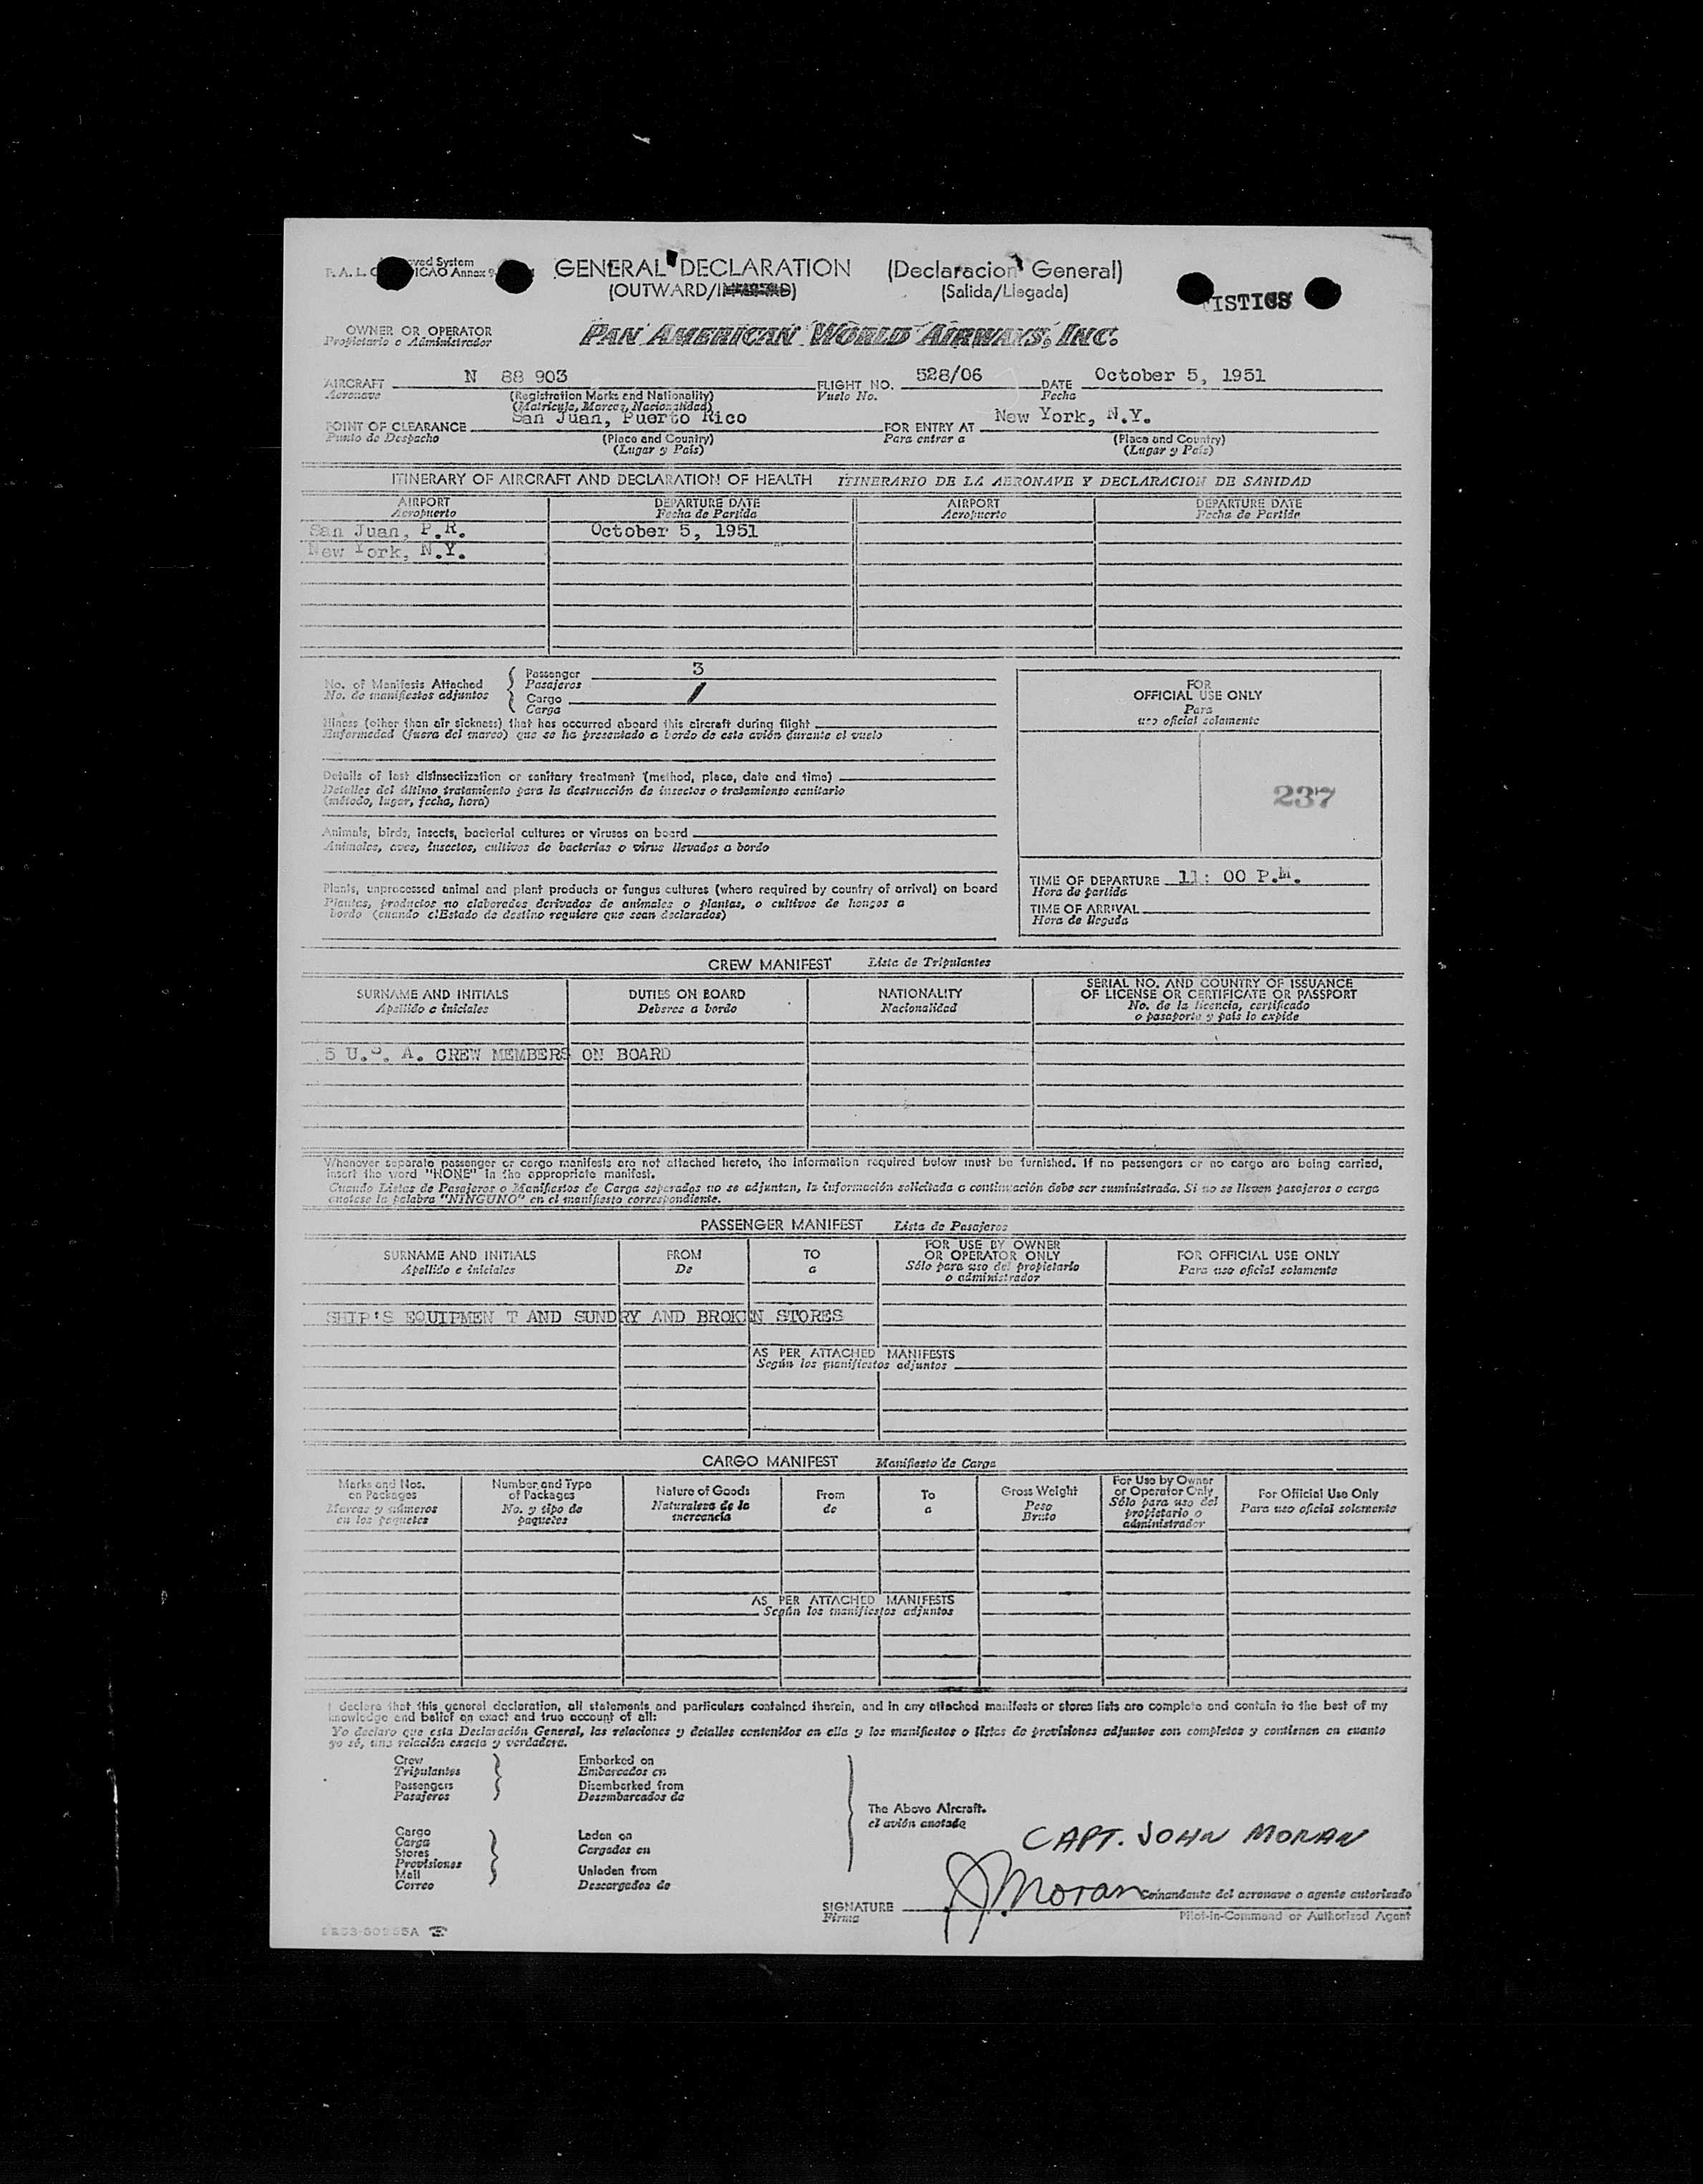 GENERAL DECLARATION (Declaracion General)
(OUTWARD/
(Salida/Llegada)
ISTICS
OWNER OR OPERATOR
Propietario o Administrador
PAN AMERICAN WORLD AIRWAYS, INC.
AIRCRAFT N 88 903 FLIGHT NO. 528/06 DATE October 5, 1951
Aeronave (Registration Marks and Nationality) Vuelo No. Fecha
(Matricula, Marcas, Nacionalidad)
POINT OF CLEARANCE San Juan, Puerto Rico FOR ENTRY AT New York, N.Y.
Punto de Despacho (Place and Country) Para entrar a (Place and Country)
(Lugar y País) (Lugar y País)
ITINERARY OF AIRCRAFT AND DECLARATION OF HEALTH ITINERARIO DE LA AERONAVE Y DECLARACION DE SANIDAD
AIRPORT DEPARTURE DATE AIRPORT DEPARTURE DATE
Aeropuerto Fecha de Partida Aeropuerto Fecha de Partida
San Juan, P.R. October 5, 1951
New York, N.Y.
No. of Manifests Attached
No. de manifiestos adjuntos
Passenger 3
Pasajeros
Cargo /
Carga
Illness (other than air sickness) that has occurred aboard this aircraft during flight
Enfermedad (fuera del mareo) que se ha presentado a bordo de este avión durante el vuelo
Details of last disinsectization or sanitary treatment (method, place, date and time)
Detalles del último tratamiento para la destrucción de insectos o tratamiento sanitario
(método, lugar, fecha, hora)
Animals, birds, insects, bacterial cultures or viruses on board
Animales, aves, insectos, cultivos de bacterias o virus llevados a bordo
Plants, unprocessed animal and plant products or fungus cultures (where required by country of arrival) on board
Plantas, productos no elaborados derivados de animales o plantas, o cultivos de hongos a
bordo (cuando el Estado de destino requiere que sean declarados)
FOR
OFFICIAL USE ONLY
Para
uso oficial solamente
237
TIME OF DEPARTURE 11: 00 P.M.
Hora de partida
TIME OF ARRIVAL
Hora de llegada
CREW MANIFEST Lista de Tripulantes
SURNAME AND INITIALS DUTIES ON BOARD NATIONALITY SERIAL NO. AND COUNTRY OF ISSUANCE
OF LICENSE OR CERTIFICATE OR PASSPORT
Apellido e iniciales Deberes a bordo Nacionalidad No. de la licencia, certificado
o pasaporte y país lo expide
5 U.S. A. CREW MEMBERS ON BOARD
Whenever separate passenger or cargo manifests are not attached hereto, the information required below must be furnished. If no passengers or no cargo are being carried,
insert the word "NONE" in the appropriate manifest.
Cuando Listas de Pasajeros o Manifiestos de Carga separados no se adjuntan, la información solicitada a continuación debe ser suministrada. Si no se lleven pasajeros o carga
anotese la palabra "NINGUNO" en el manifiesto correspondiente.
PASSENGER MANIFEST Lista de Pasajeros
SURNAME AND INITIALS FROM TO FOR USE BY OWNER
OR OPERATOR ONLY FOR OFFICIAL USE ONLY
Apellido e iniciales De a Sólo para uso del propietario
o administrador Para uso oficial solamente
SHIP'S EQUIPMEN T AND SUNDRY AND BROKEN STORES
AS PER ATTACHED MANIFESTS
Según los manifiestos adjuntos
CARGO MANIFEST Manifiesto de Carga
Marks and Nos.
on Packages
Marcas y números
en los paquetes
Number and Type
of Packages
No. y tipo de
paquetes
Nature of Goods
Naturaleza de la
mercancía
From
de
To
a
Gross Weight
Peso
Bruto
For Use by Owner
or Operator Only
Sólo para uso del
propietario o
administrador
For Official Use Only
Para uso oficial solamente
AS PER ATTACHED MANIFESTS
Según los manifiestos adjuntos
I declare that this general declaration, all statements and particulars contained therein, and in any attached manifests or stores lists are complete and contain to the best of my
knowledge and belief an exact and true account of all:
Yo declaro que esta Declaración General, las relaciones y detalles contenidos en ella y los manifiestos o listas de provisiones adjuntos son completos y contienen en cuanto
yo sé, una relación exacta y verdadera.
Crew
Tripulantes
Passengers
Pasajeros
Embarked on
Embarcados en
Disembarked from
Desembarcados de
Cargo
Carga
Stores
Provisiones
Mail
Correo
Laden on
Cargados en
Unladen from
Descargados de
The Above Aircraft.
el avión anotado
CAPT. JOHN MORAN
SIGNATURE J. Moran Comandante del aeronave o agente autorizado
Firma Pilot-in-Command or Authorized Agent